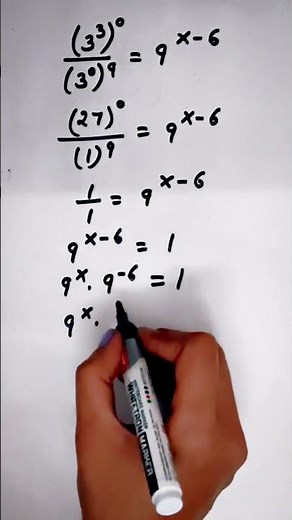 (3³)⁰/(3⁰)⁹ = 9ˣ⁻⁶
(27)⁰/(1)⁹ = 9ˣ⁻⁶
1/1 = 9ˣ⁻⁶
9ˣ⁻⁶ = 1
9ˣ · 9⁻⁶ = 1
9ˣ ·
WHITEBOARD MARKER